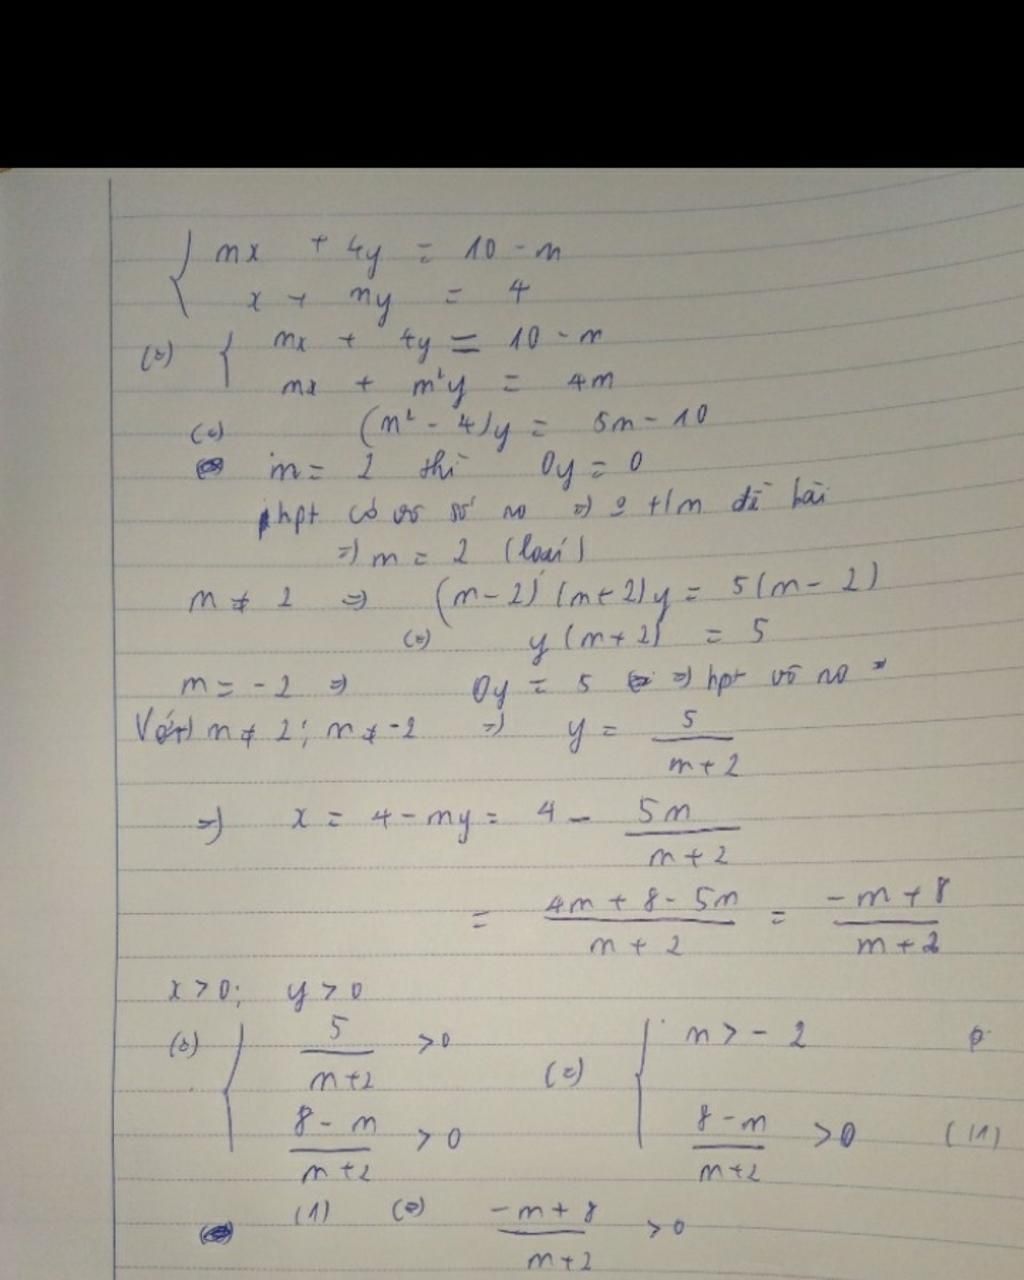 { mx + 4y = 10 - m
x + my = 4
(=) { mx + 4y = 10 - m
mx + m²y = 4m
(=) (m² - 4)y = 5m - 10
m = 2 thì 0y = 0
hpt có vô số no => o t/m đề bài
=> m = 2 (loại)
m ≠ 2 => (m-2)(m+2)y = 5(m-2)
(=) y(m+2) = 5
m = -2 => 0y = 5 => hpt vô no
Với m ≠ 2; m ≠ -2 => y = 5/(m+2)
=> x = 4 - my = 4 - 5m/(m+2)
= (4m + 8 - 5m)/(m+2) = (-m + 8)/(m+2)
x > 0; y > 0
(=) { 5/(m+2) > 0 (=) { m > -2
(8 - m)/(m+2) > 0 (8 - m)/(m+2) > 0 (1)
(1) (=) (-m + 8)/(m+2) > 0